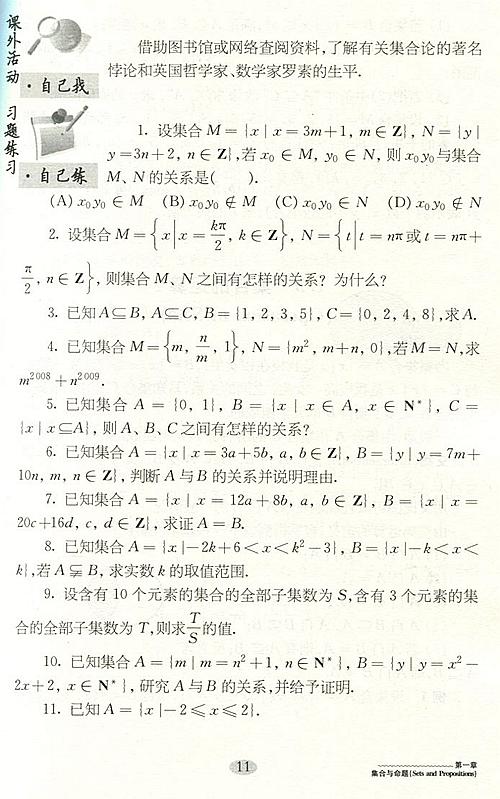 课外活动
·自己找
借助图书馆或网络查阅资料,了解有关集合论的著名
悖论和英国哲学家、数学家罗素的生平.
习题练习
·自己练
1. 设集合 M = {x | x = 3m+1, m ∈ Z}, N = {y |
y = 3n+2, n ∈ Z},若 x₀ ∈ M, y₀ ∈ N, 则 x₀y₀ 与集合
M、N 的关系是(  ).
(A) x₀y₀ ∈ M (B) x₀y₀ ∉ M (C) x₀y₀ ∈ N (D) x₀y₀ ∉ N
2. 设集合 M = {x | x = kπ/2, k ∈ Z}, N = {t | t = nπ 或 t = nπ +
π/2, n ∈ Z}, 则集合 M、N 之间有怎样的关系? 为什么?
3. 已知 A⊆B, A⊆C, B = {1, 2, 3, 5}, C = {0, 2, 4, 8},求 A.
4. 已知集合 M = {m, n/m, 1}, N = {m², m+n, 0},若 M = N,求
m²⁰⁰⁸ + n²⁰⁰⁹.
5. 已知集合 A = {0, 1}, B = {x | x ∈ A, x ∈ N*}, C =
{x | x ⊆ A}, 则 A、B、C 之间有怎样的关系?
6. 已知集合 A = {x | x = 3a+5b, a, b ∈ Z}, B = {y | y = 7m+
10n, m, n ∈ Z}, 判断 A 与 B 的关系并说明理由.
7. 已知集合 A = {x | x = 12a+8b, a, b ∈ Z}, B = {x | x =
20c+16d, c, d ∈ Z}, 求证 A = B.
8. 已知集合 A = {x | −2k+6 < x < k²−3}, B = {x | −k < x <
k},若 A ⫋ B, 求实数 k 的取值范围.
9. 设含有 10 个元素的集合的全部子集数为 S,含有 3 个元素的集
合的全部子集数为 T,则求 T/S 的值.
10. 已知集合 A = {m | m = n²+1, n ∈ N*}, B = {y | y = x²−
2x+2, x ∈ N*}, 研究 A 与 B 的关系,并给予证明.
11. 已知 A = {x | −2 ≤ x ≤ 2}.
11
第一章
集合与命题(Sets and Propositions)